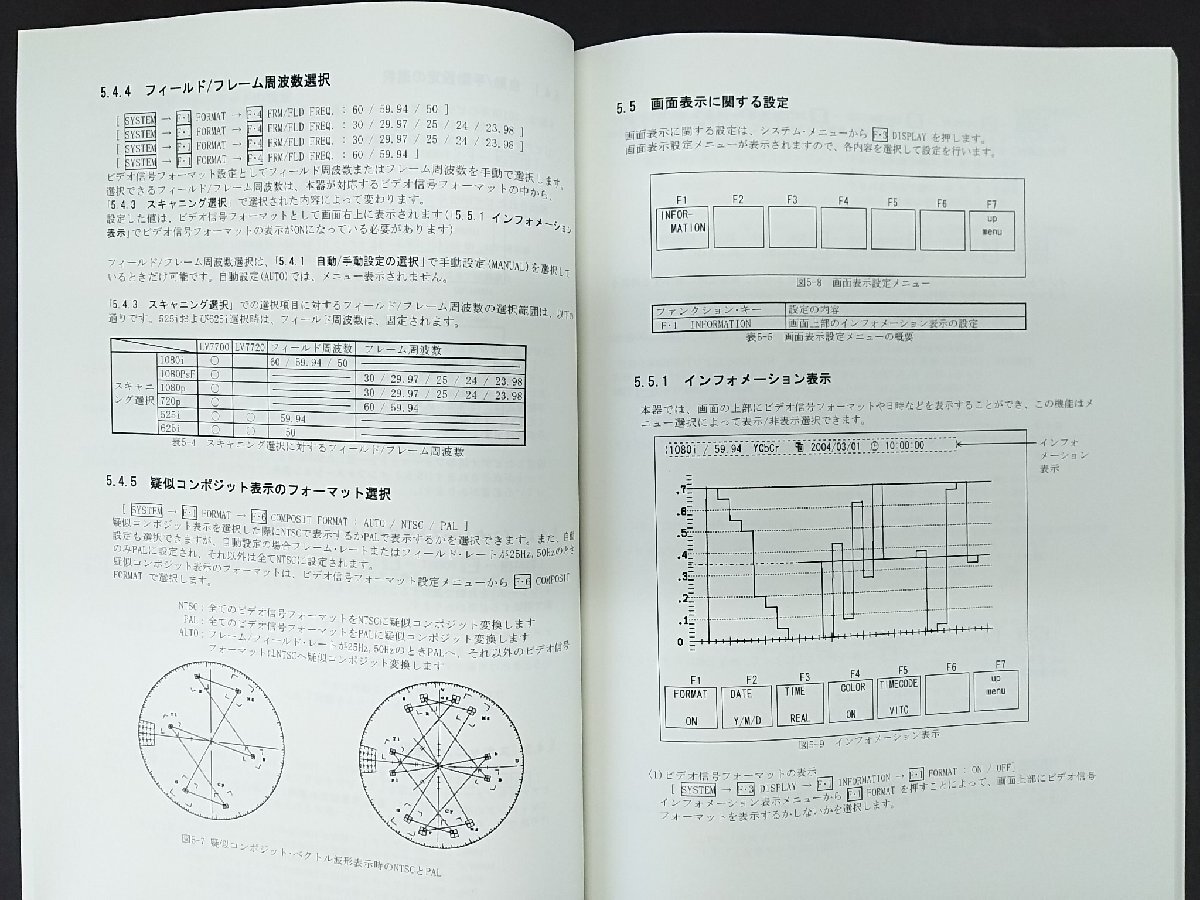 5.4.4 フィールド/フレーム周波数選択
[ SYSTEM → F・1 FORMAT → F・4 FRM/FLD FREQ. : 60 / 59.94 / 50 ]
[ SYSTEM → F・1 FORMAT → F・4 FRM/FLD FREQ. : 30 / 29.97 / 25 / 24 / 23.98 ]
[ SYSTEM → F・1 FORMAT → F・4 FRM/FLD FREQ. : 30 / 29.97 / 25 / 24 / 23.98 ]
[ SYSTEM → F・1 FORMAT → F・4 FRM/FLD FREQ. : 60 / 59.94 ]
ビデオ信号フォーマット設定としてフィールド周波数またはフレーム周波数を手動で選択します。
選択できるフィールド/フレーム周波数は、本器が対応するビデオ信号フォーマットの中から、
「5.4.3 スキャニング選択」で選択された内容によって変わります。
設定した値は、ビデオ信号フォーマットとして画面右上に表示されます(「5.5.1 インフォメーション
表示」でビデオ信号フォーマットの表示がONになっている必要があります)
フィールド/フレーム周波数選択は、「5.4.1 自動/手動設定の選択」で手動設定(MANUAL)を選択して
いるときだけ可能です。自動設定(AUTO)では、メニュー表示されません。
「5.4.3 スキャニング選択」での選択項目に対するフィールド/フレーム周波数の選択範囲は、以下の
通りです。525iおよび625i選択時は、フィールド周波数は、固定されます。
LV7700 LV7720 フィールド周波数 フレーム周波数
スキャニング選択
1080i ○ 60 / 59.94 / 50
1080PsF ○ 30 / 29.97 / 25 / 24 / 23.98
1080p ○ 30 / 29.97 / 25 / 24 / 23.98
720p ○ 60 / 59.94
525i ○ ○ 59.94
625i ○ ○ 50
表5-4 スキャニング選択に対するフィールド/フレーム周波数
5.4.5 疑似コンポジット表示のフォーマット選択
[ SYSTEM → F・1 FORMAT → F・6 COMPOSIT FORMAT : AUTO / NTSC / PAL ]
疑似コンポジット表示を選択した際にNTSCで表示するかPALで表示するかを選択できます。また、自動
設定も選択できますが、自動設定の場合フレーム・レートまたはフィールド・レートが25Hz,50Hzのとき
のみPALに設定され、それ以外は全てNTSCに設定されます。
疑似コンポジット表示のフォーマットは、ビデオ信号フォーマット設定メニューから F・6 COMPOSIT
FORMAT で選択します。
NTSC : 全てのビデオ信号フォーマットをNTSCに疑似コンポジット変換します
PAL : 全てのビデオ信号フォーマットをPALに疑似コンポジット変換します
AUTO : フレーム/フィールド・レートが25Hz,50HzのときPALへ、それ以外のビデオ信号
フォーマットはNTSCへ疑似コンポジット変換します
図5-7 疑似コンポジット・ベクトル波形表示時のNTSCとPAL
5.5 画面表示に関する設定
画面表示に関する設定は、システム・メニューから F・3 DISPLAY を押します。
画面表示設定メニューが表示されますので、各内容を選択して設定を行います。
F1 F2 F3 F4 F5 F6 F7
INFOR-
MATION
up
menu
図5-8 画面表示設定メニュー
ファンクション・キー 設定の内容
F・1 INFORMATION 画面上部のインフォメーション表示の設定
表5-5 画面表示設定メニューの概要
5.5.1 インフォメーション表示
本器では、画面の上部にビデオ信号フォーマットや日時などを表示することができ、この機能はメ
ニュー選択によって表示/非表示選択できます。
1080i / 59.94 YCbCr 2004/03/01 10:00:00
インフォ
メーション
表示
.7
.6
.5
.4
.3
.2
.1
0
F1 F2 F3 F4 F5 F6 F7
FORMAT DATE TIME COLOR TIMECODE up
menu
ON Y/M/D REAL ON VITC
図5-9 インフォメーション表示
(1)ビデオ信号フォーマットの表示
[ SYSTEM → F・3 DISPLAY → F・1 INFORMATION → F・1 FORMAT : ON / OFF]
インフォメーション表示メニューから F・1 FORMAT を押すことによって、画面上部にビデオ信号
フォーマットを表示するかしないかを選択します。